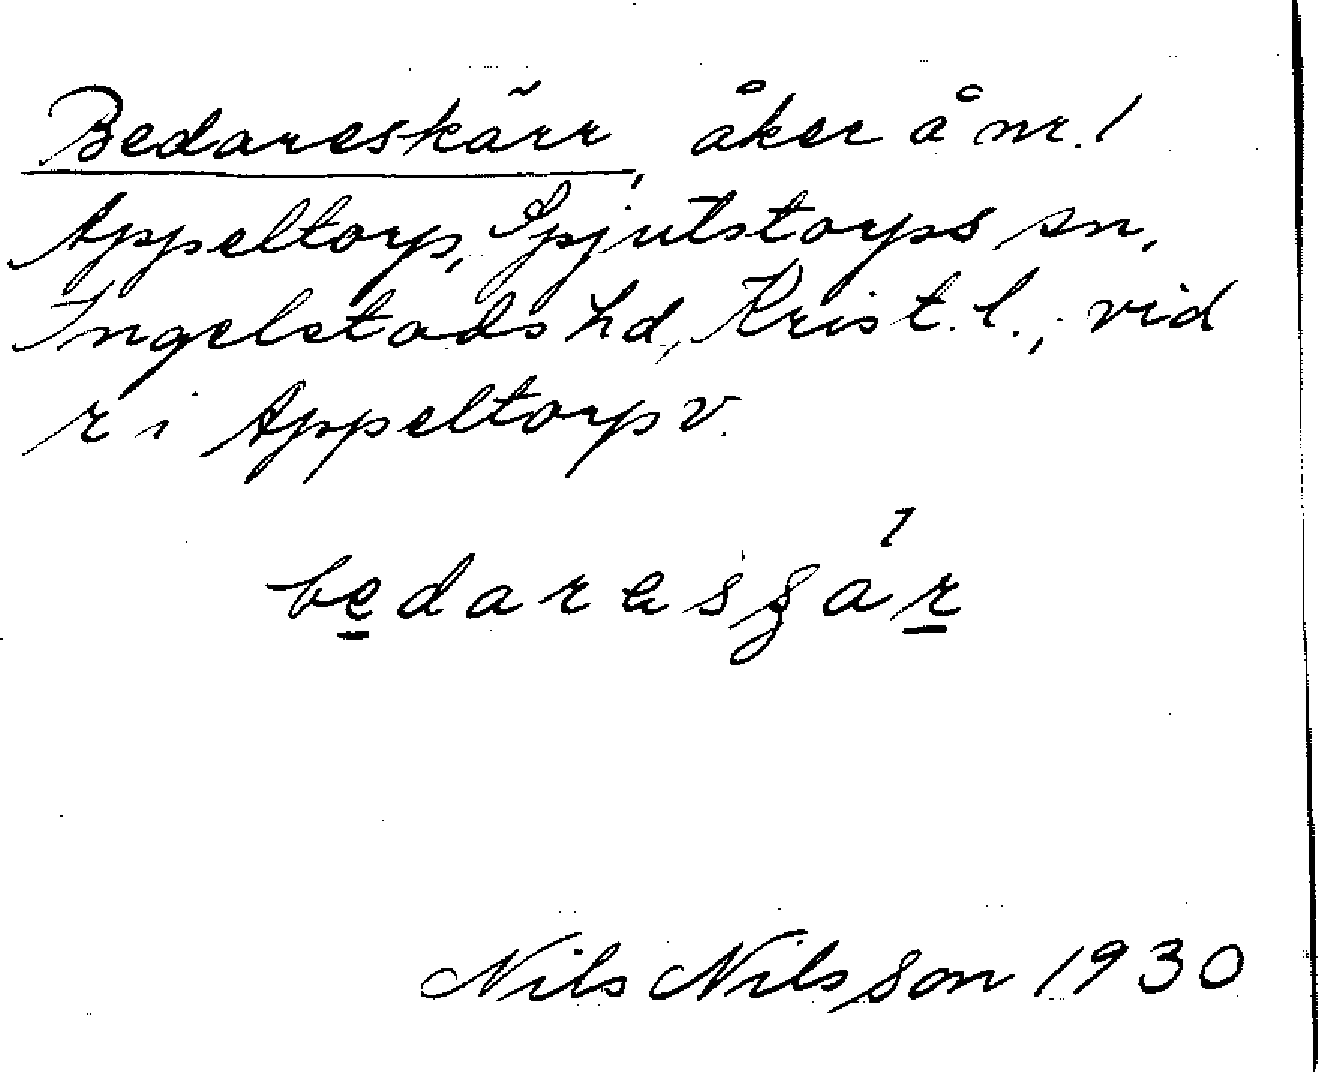 Bedareskärr, åker å nr. 1
Appeltorp, Spjutstorps sn,
Ingelstads hd, Krist. l., vid
r i Appeltorp v.
Nils Nilsson 1930